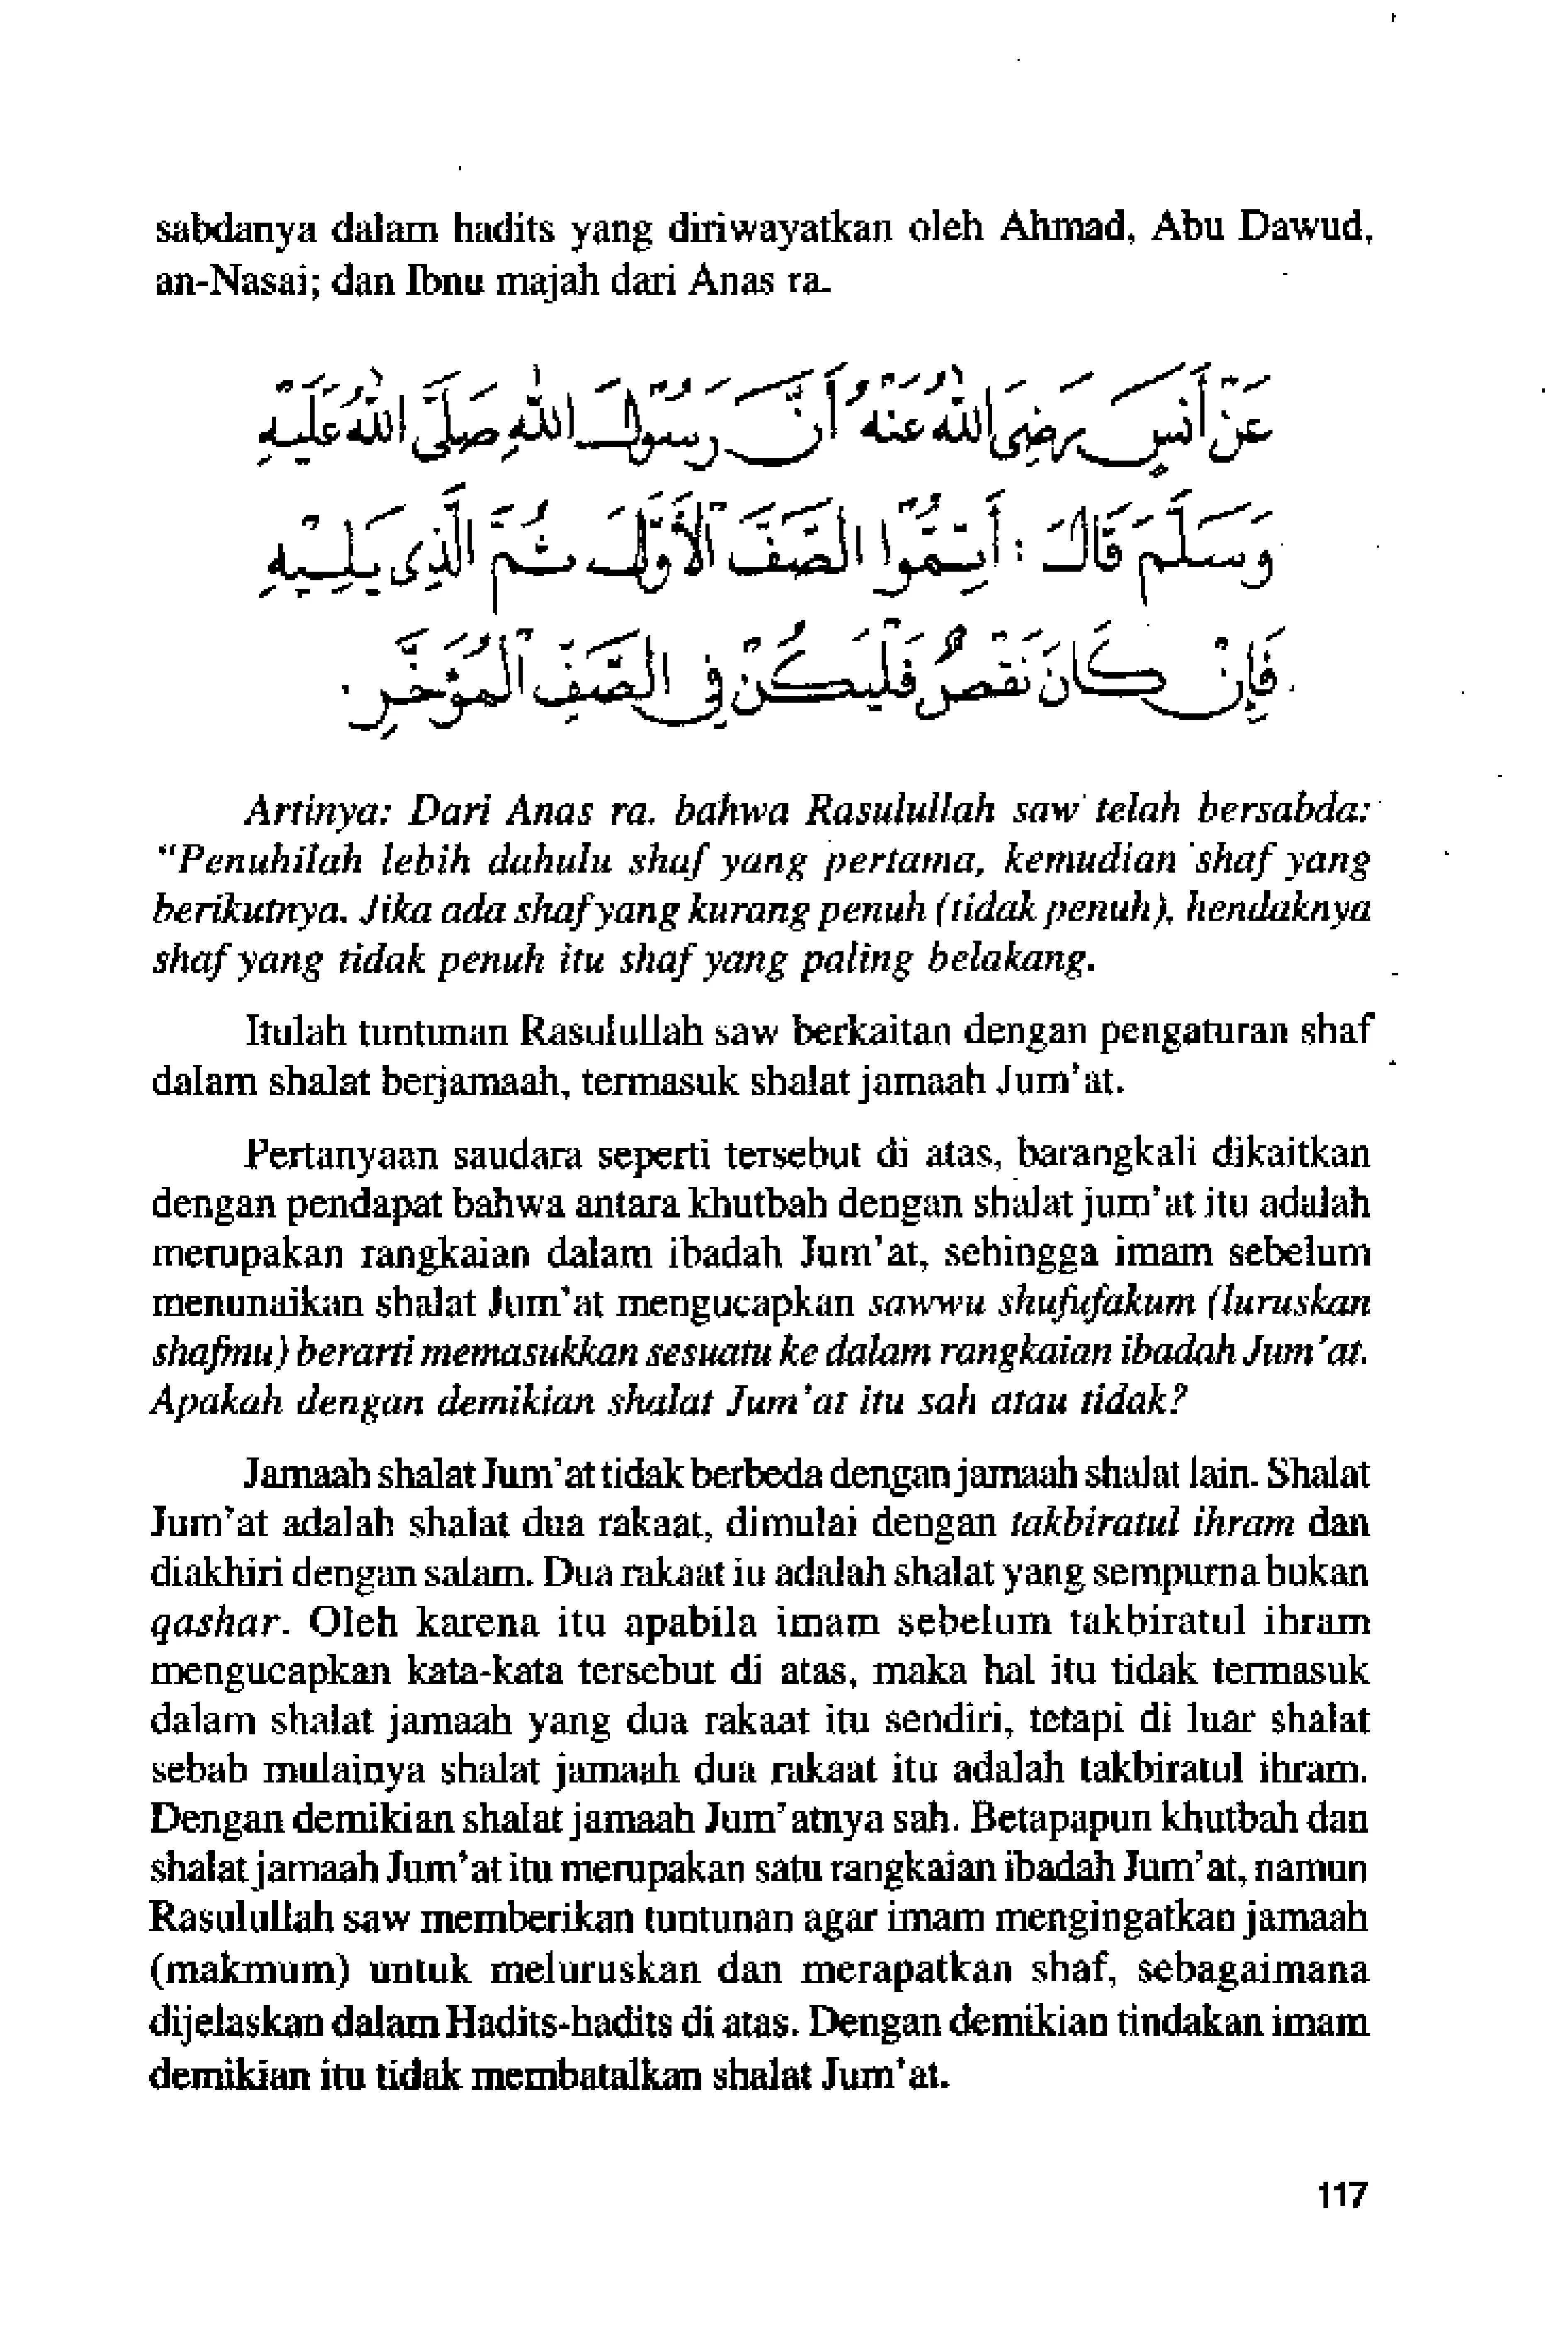 sabdanya dalam hadits yang diriwayatkan oleh Ahmad, Abu Dawud,
an-Nasai; dan Ibnu majah dari Anas ra.
عَنْ أَنَسٍ رَضِيَ اللهُ عَنْهُ أَنَّ رَسُوْلَ اللهِ صَلَّى اللهُ عَلَيْهِ
وَسَلَّمَ قَالَ : أَتِمُّوا الصَّفَّ الْأَوَّلَ ثُمَّ الَّذِي يَلِيْهِ
فَإِنْ كَانَ نَقْصٌ فَلْيَكُنْ فِي الصَّفِّ الْمُؤَخَّرِ.
Artinya: Dari Anas ra. bahwa Rasulullah saw telah bersabda:
"Penuhilah lebih dahulu shaf yang pertama, kemudian shaf yang
berikutnya. Jika ada shaf yang kurang penuh (tidak penuh), hendaknya
shaf yang tidak penuh itu shaf yang paling belakang.
Itulah tuntunan Rasulullah saw berkaitan dengan pengaturan shaf
dalam shalat berjamaah, termasuk shalat jamaah Jum'at.
Pertanyaan saudara seperti tersebut di atas, barangkali dikaitkan
dengan pendapat bahwa antara khutbah dengan shalat jum'at itu adalah
merupakan rangkaian dalam ibadah Jum'at, sehingga imam sebelum
menunaikan shalat Jum'at mengucapkan sawwu shufufakum (luruskan
shafmu) berarti memasukkan sesuatu ke dalam rangkaian ibadah Jum'at.
Apakah dengan demikian shalat Jum'at itu sah atau tidak?
Jamaah shalat Jum'at tidak berbeda dengan jamaah shalat lain. Shalat
Jum'at adalah shalat dua rakaat, dimulai dengan takbiratul ihram dan
diakhiri dengan salam. Dua rakaat iu adalah shalat yang sempurna bukan
qashar. Oleh karena itu apabila imam sebelum takbiratul ihram
mengucapkan kata-kata tersebut di atas, maka hal itu tidak termasuk
dalam shalat jamaah yang dua rakaat itu sendiri, tetapi di luar shalat
sebab mulainya shalat jamaah dua rakaat itu adalah takbiratul ihram.
Dengan demikian shalat jamaah Jum'atnya sah. Betapapun khutbah dan
shalat jamaah Jum'at itu merupakan satu rangkaian ibadah Jum'at, namun
Rasulullah saw memberikan tuntunan agar imam mengingatkan jamaah
(makmum) untuk meluruskan dan merapatkan shaf, sebagaimana
dijelaskan dalam Hadits-hadits di atas. Dengan demikian tindakan imam
demikian itu tidak membatalkan shalat Jum'at.
117